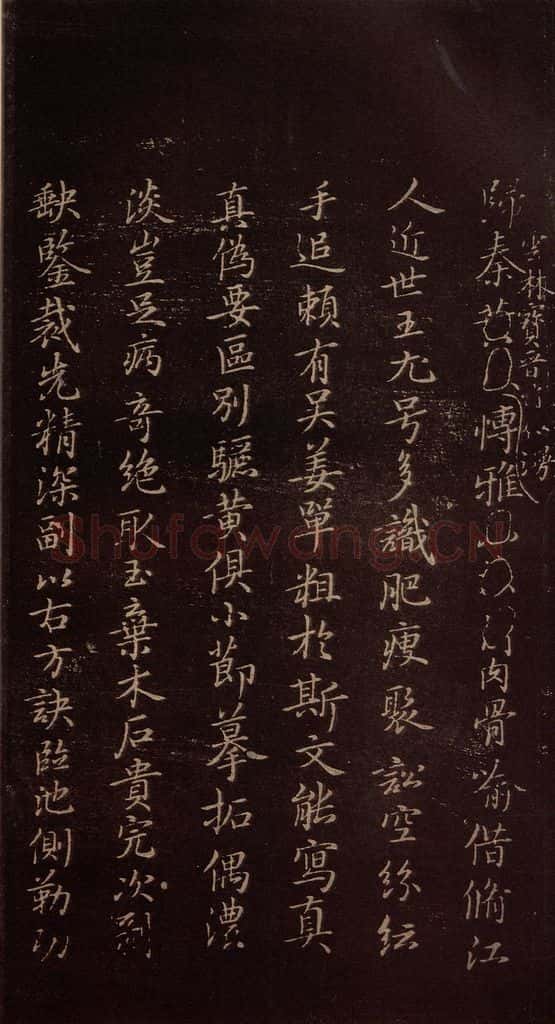 歸秦 博雅 肉骨俞借脩江
空林寶晉
人近世王尤号多識肥瘦聚訟空紛紜
手追頼有吴姜單粗於斯文能寫真
真偽要區別驪黄俱小莭摹拓偶濃
淡豈足病奇絶取玉棄木石貴完次剔
缺鑒裁先精深副以右方訣臨池側勒功
Shufawang.CN